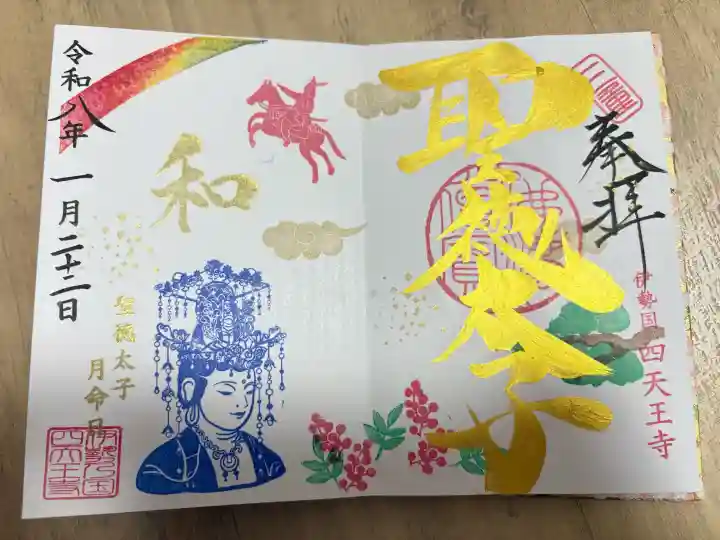 奉拝
聖徳太子
伊勢国 四天王寺
和
令和八年 一月二十二日
聖徳太子
月命日
伊勢国
四天王寺